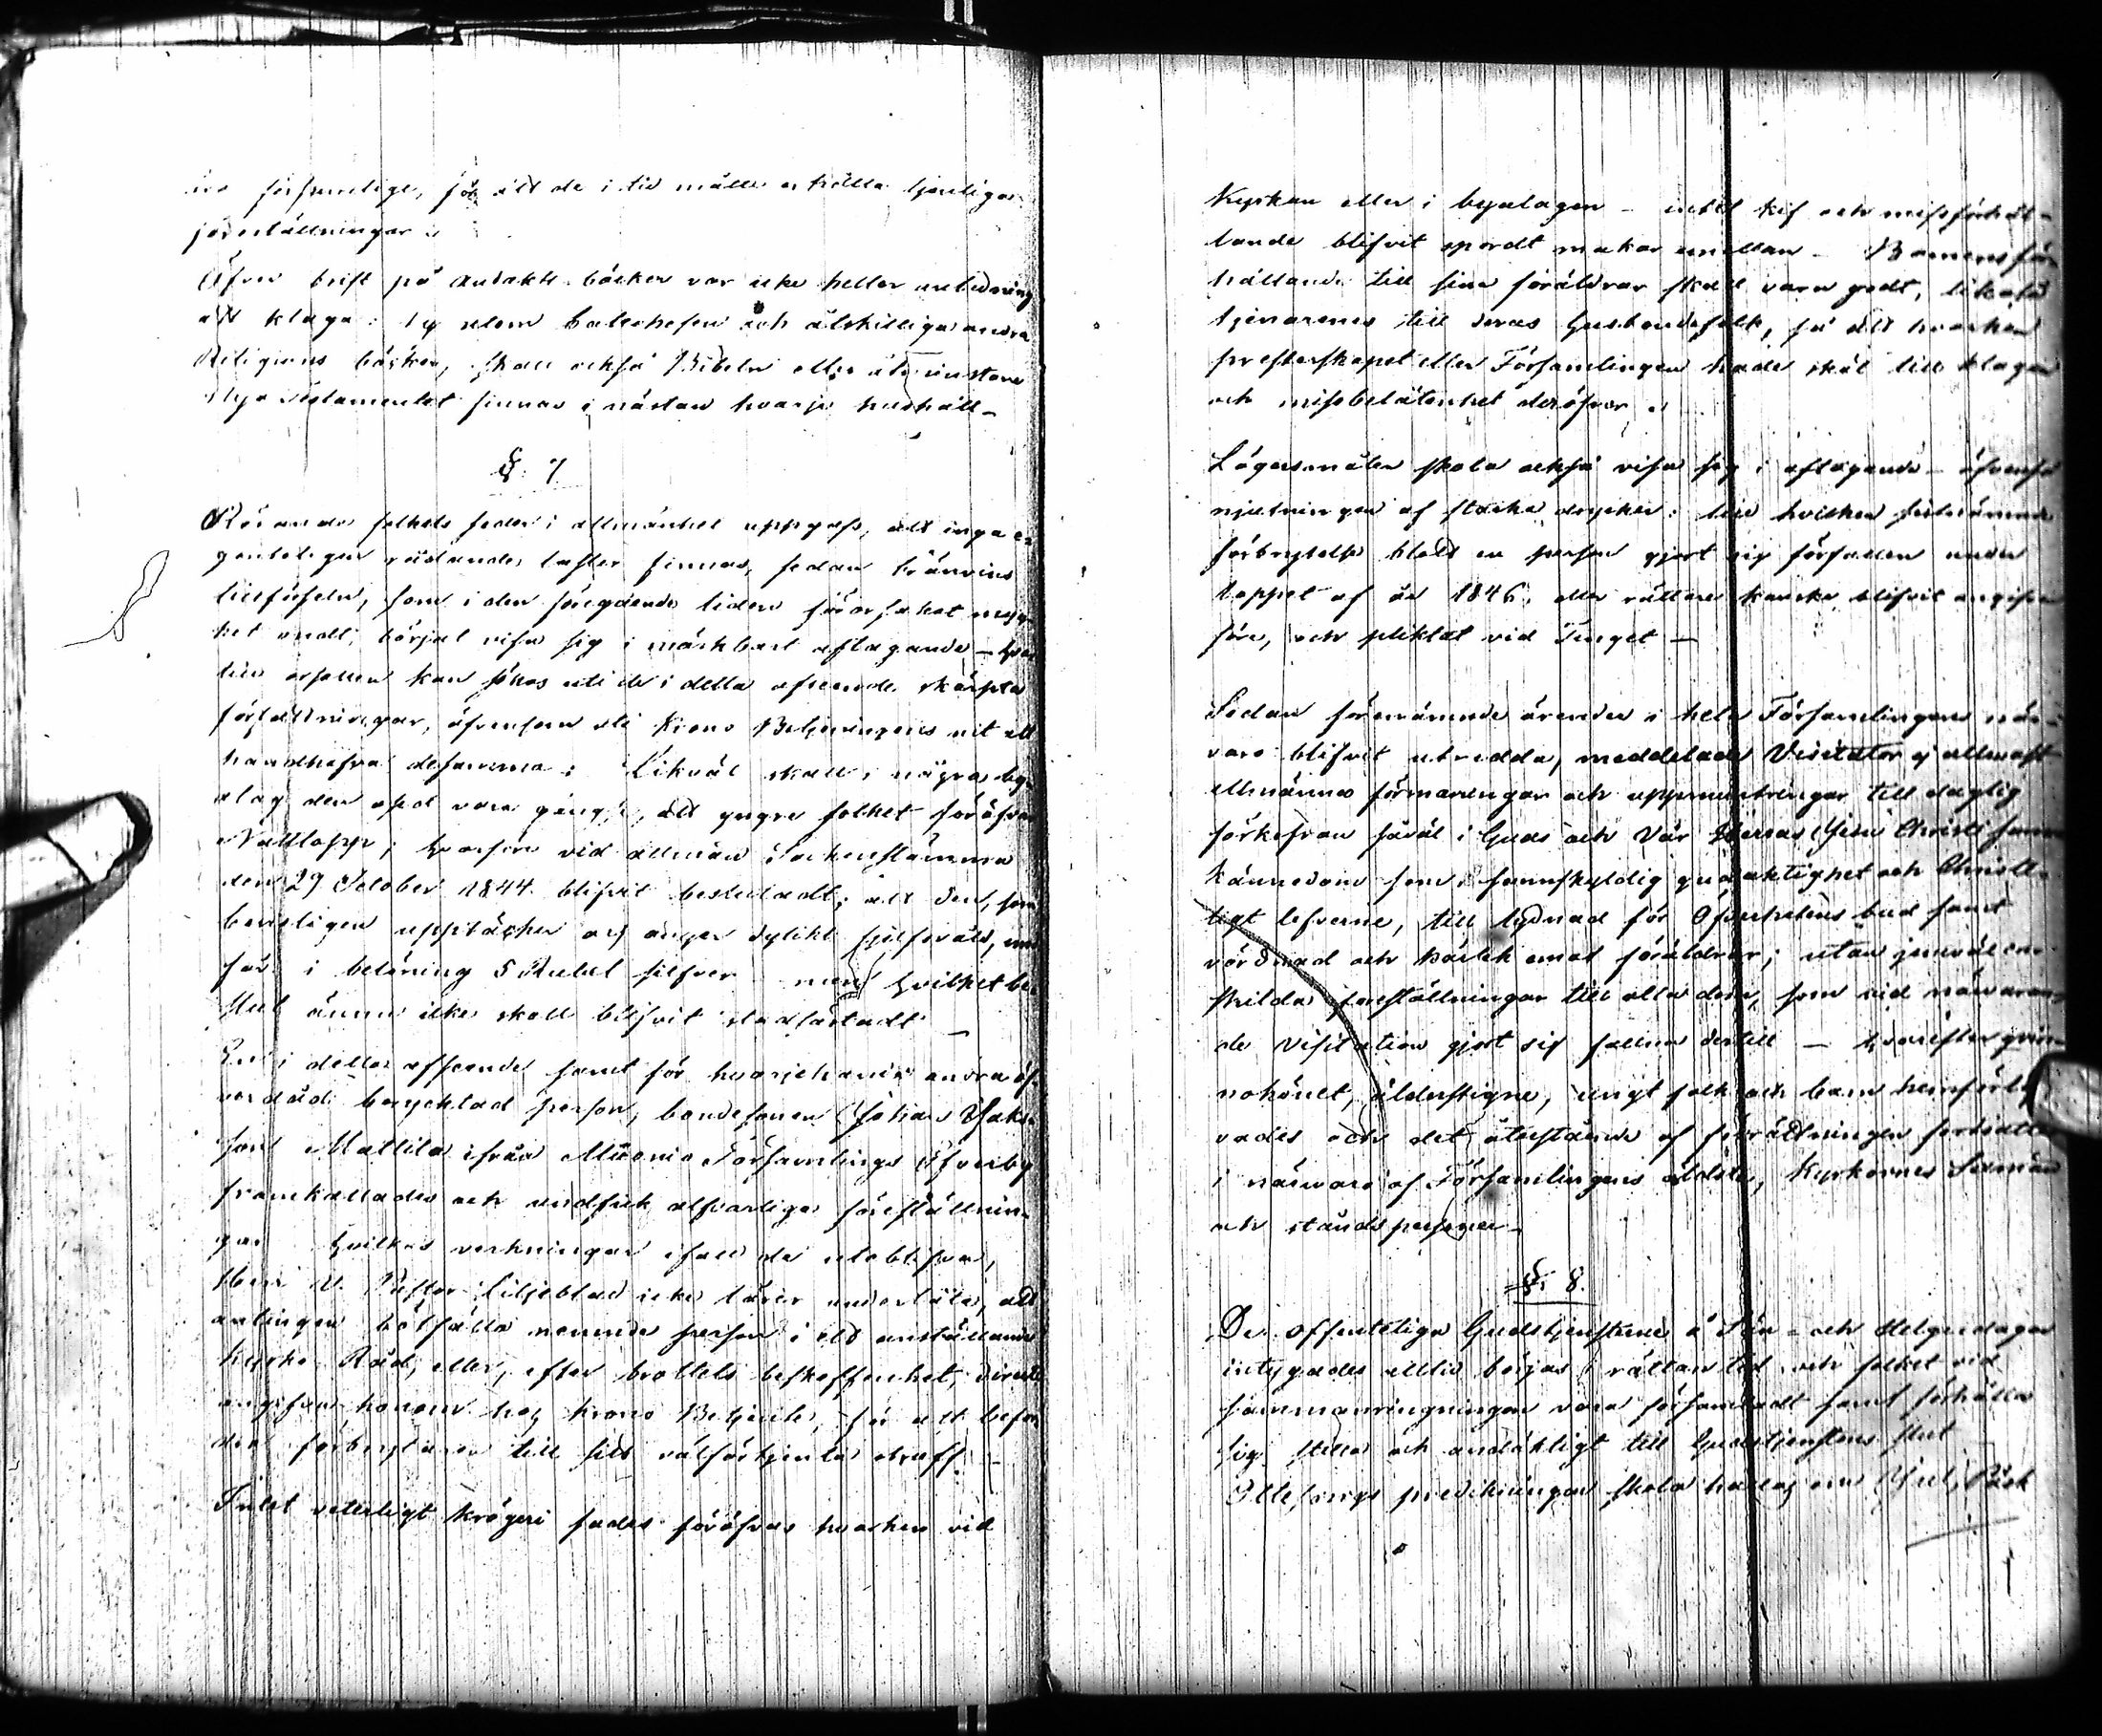 äro försumlige, för att de i tid måtte erhålla tjenliga
föreställningar.
Äfven brist på Andakts-böcker var icke heller anledning
att klaga: ty utom Catechesen och åtskilliga andra
Religions böcker, skall också Bibeln eller åtminstone
Nya Testamentet finnas i nästan hvarje hushåll_
§. 7.
Rörande folkets seder i allmänhet uppgafs, att inga e
gentligen rådande laster finnas, sedan bränvins
tillförseln, som i den föregående tiden förorsakat myc
ket ondt, börjat visa sig i märkbart aftagande, –
till orsaken kan sökas uti de i detta afseende skärpta
författningar, äfvensom uti Krono Betjeningens nit att
handhafva desamma: Likväl skall i några by-
alag den osed vara gängse, att yngre folket föröfva
Nattlopp; hvarföre vid allmän Sockenstämma
den 29 October 1844 blifvit beslutadt, att den, som
bevisligen upptäcker och anger dylikt sjelfsvåld, und
får i belöning 5 Rubel silfver men hvilket be
slut ännu icke skall blifvit stadfästadt _
En i detta afseende samt för hvarjehanda andra öf-
verdåd beryktad person, bondesonen Johan Isaks-
son Mattila ifrån Muonio Församlings Öfverby
framkallades och undfick alfvarliga föreställnin-
gar hvilkas verkningar ifall de uteblifva,
Herr V. Pastor Liljeblad icke lärer underlåta, att
antingen botfälla nämnde person i ett anställande
Kyrko Råd, eller, efter brottets beskaffenhet, direkte
angifva honom hos Krono Betjente, för att befor
dra förbrytaren till sitt välförtjenta straff. –
Intet vetterligt krögeri sades föröfvas hvarken vid
Kyrkan eller i byalagen – intet kif och missförhål-
lande blifvit spordt makar emellan – Barnens för
hållande till sina föräldrar skall vara godt, likaså
tjenarenes till deras husbondefolk, så att hvarken
presterskapet eller Församlingen hade skäl till klagan
och missbelåtenhet deröfver.
Lägersmålen skola också visa sig i aftagande – äfvenså
njutningen af starka drycker: till hvilken sistnämnda
förbrytelse blott en person gjort sig förfallen under
loppet af år 1846, eller rättare kanske blifvit angifven
före, och pliktat vid Tinget –
Sedan förenämnde ärenden i hela Församlingens när-
varo blifvit utredda, meddelade Visitator ej allenast
allmänna förmaningar och uppmuntringar till daglig
förkofran såväl i Guds och Vår Herras Jesu Christi sanna
kännedom som i sannskyldig gudaktighet och Christe-
ligt lefverne, till lydnad för Öfverhetens bud samt
vördnad och kärlek emot föräldrar; utan jemväl en-
skilda föreställningar till alla dem, som vid närvaran-
de visitation gjort sig fallna dertill – hvarefter qvin-
nokönet, ålderstigne, ungt folk och barn hemförlof
vades och det återstående af förrättningen fortsattes
i närvaro af Församlingens äldste, Kyrkornes Sexmän
och ståndspersoner –
§. 8.
De offentliga Gudstjensterne å Sön- och Helgedagar
intygades alltid börjas i rättan tid och folket vid
sammanringningen vara församladt samt förhålla
sig stilla och andäktigt till Gudstjenstens slut
Ottesångs predikningar skola hållas om Jul, Påsk